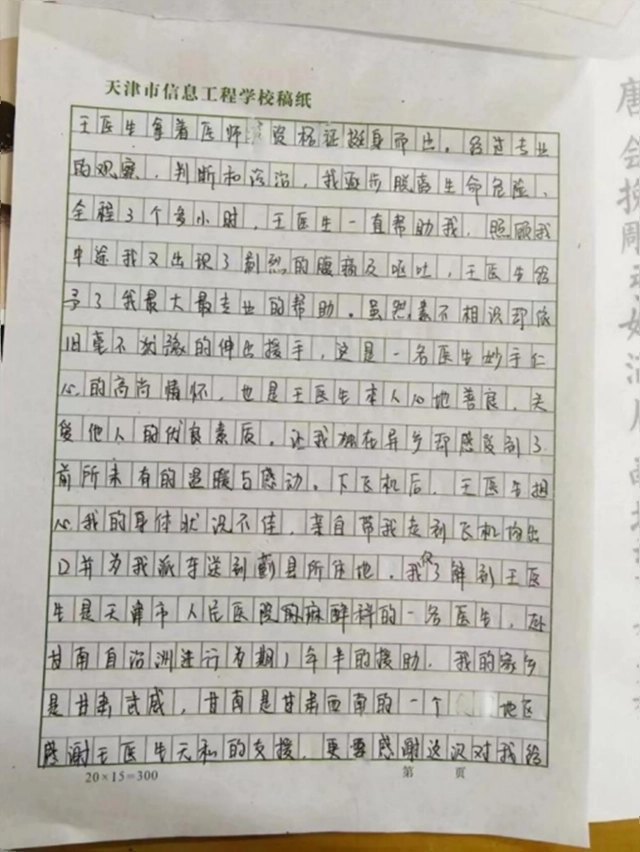 天津市信息工程学校稿纸
王医生拿着医师资格证挺身而出。经过专业
的观察、判断和诊治，我逐步脱离生命危险、
全程3个多小时，王医生一直帮助我、照顾我
中途我又出现了剧烈的腹痛及呕吐，王医生给
予了我最大最专业的帮助。虽然素不相识却依
旧毫不犹豫的伸出援手，这是一名医生妙手仁
心的高尚情怀，也是王医生本人心地善良、关
爱他人的优良素质。让我独在异乡却感受到了
前所未有的温暖与感动。下飞机后，王医生担
心我的身体状况不佳，亲自带我走到飞机场出
口并为我派车送到蓟县所住地。我仅了解到王医
生是天津市人民医院的麻醉科的一名医生，赴
甘南自治洲进行为期1年半的援助。我的家乡
是甘肃武威，甘南是甘肃西南的一个地区
感谢王医生无私的支援，更要感谢这次对我给
20×15=300
第 页
唐会